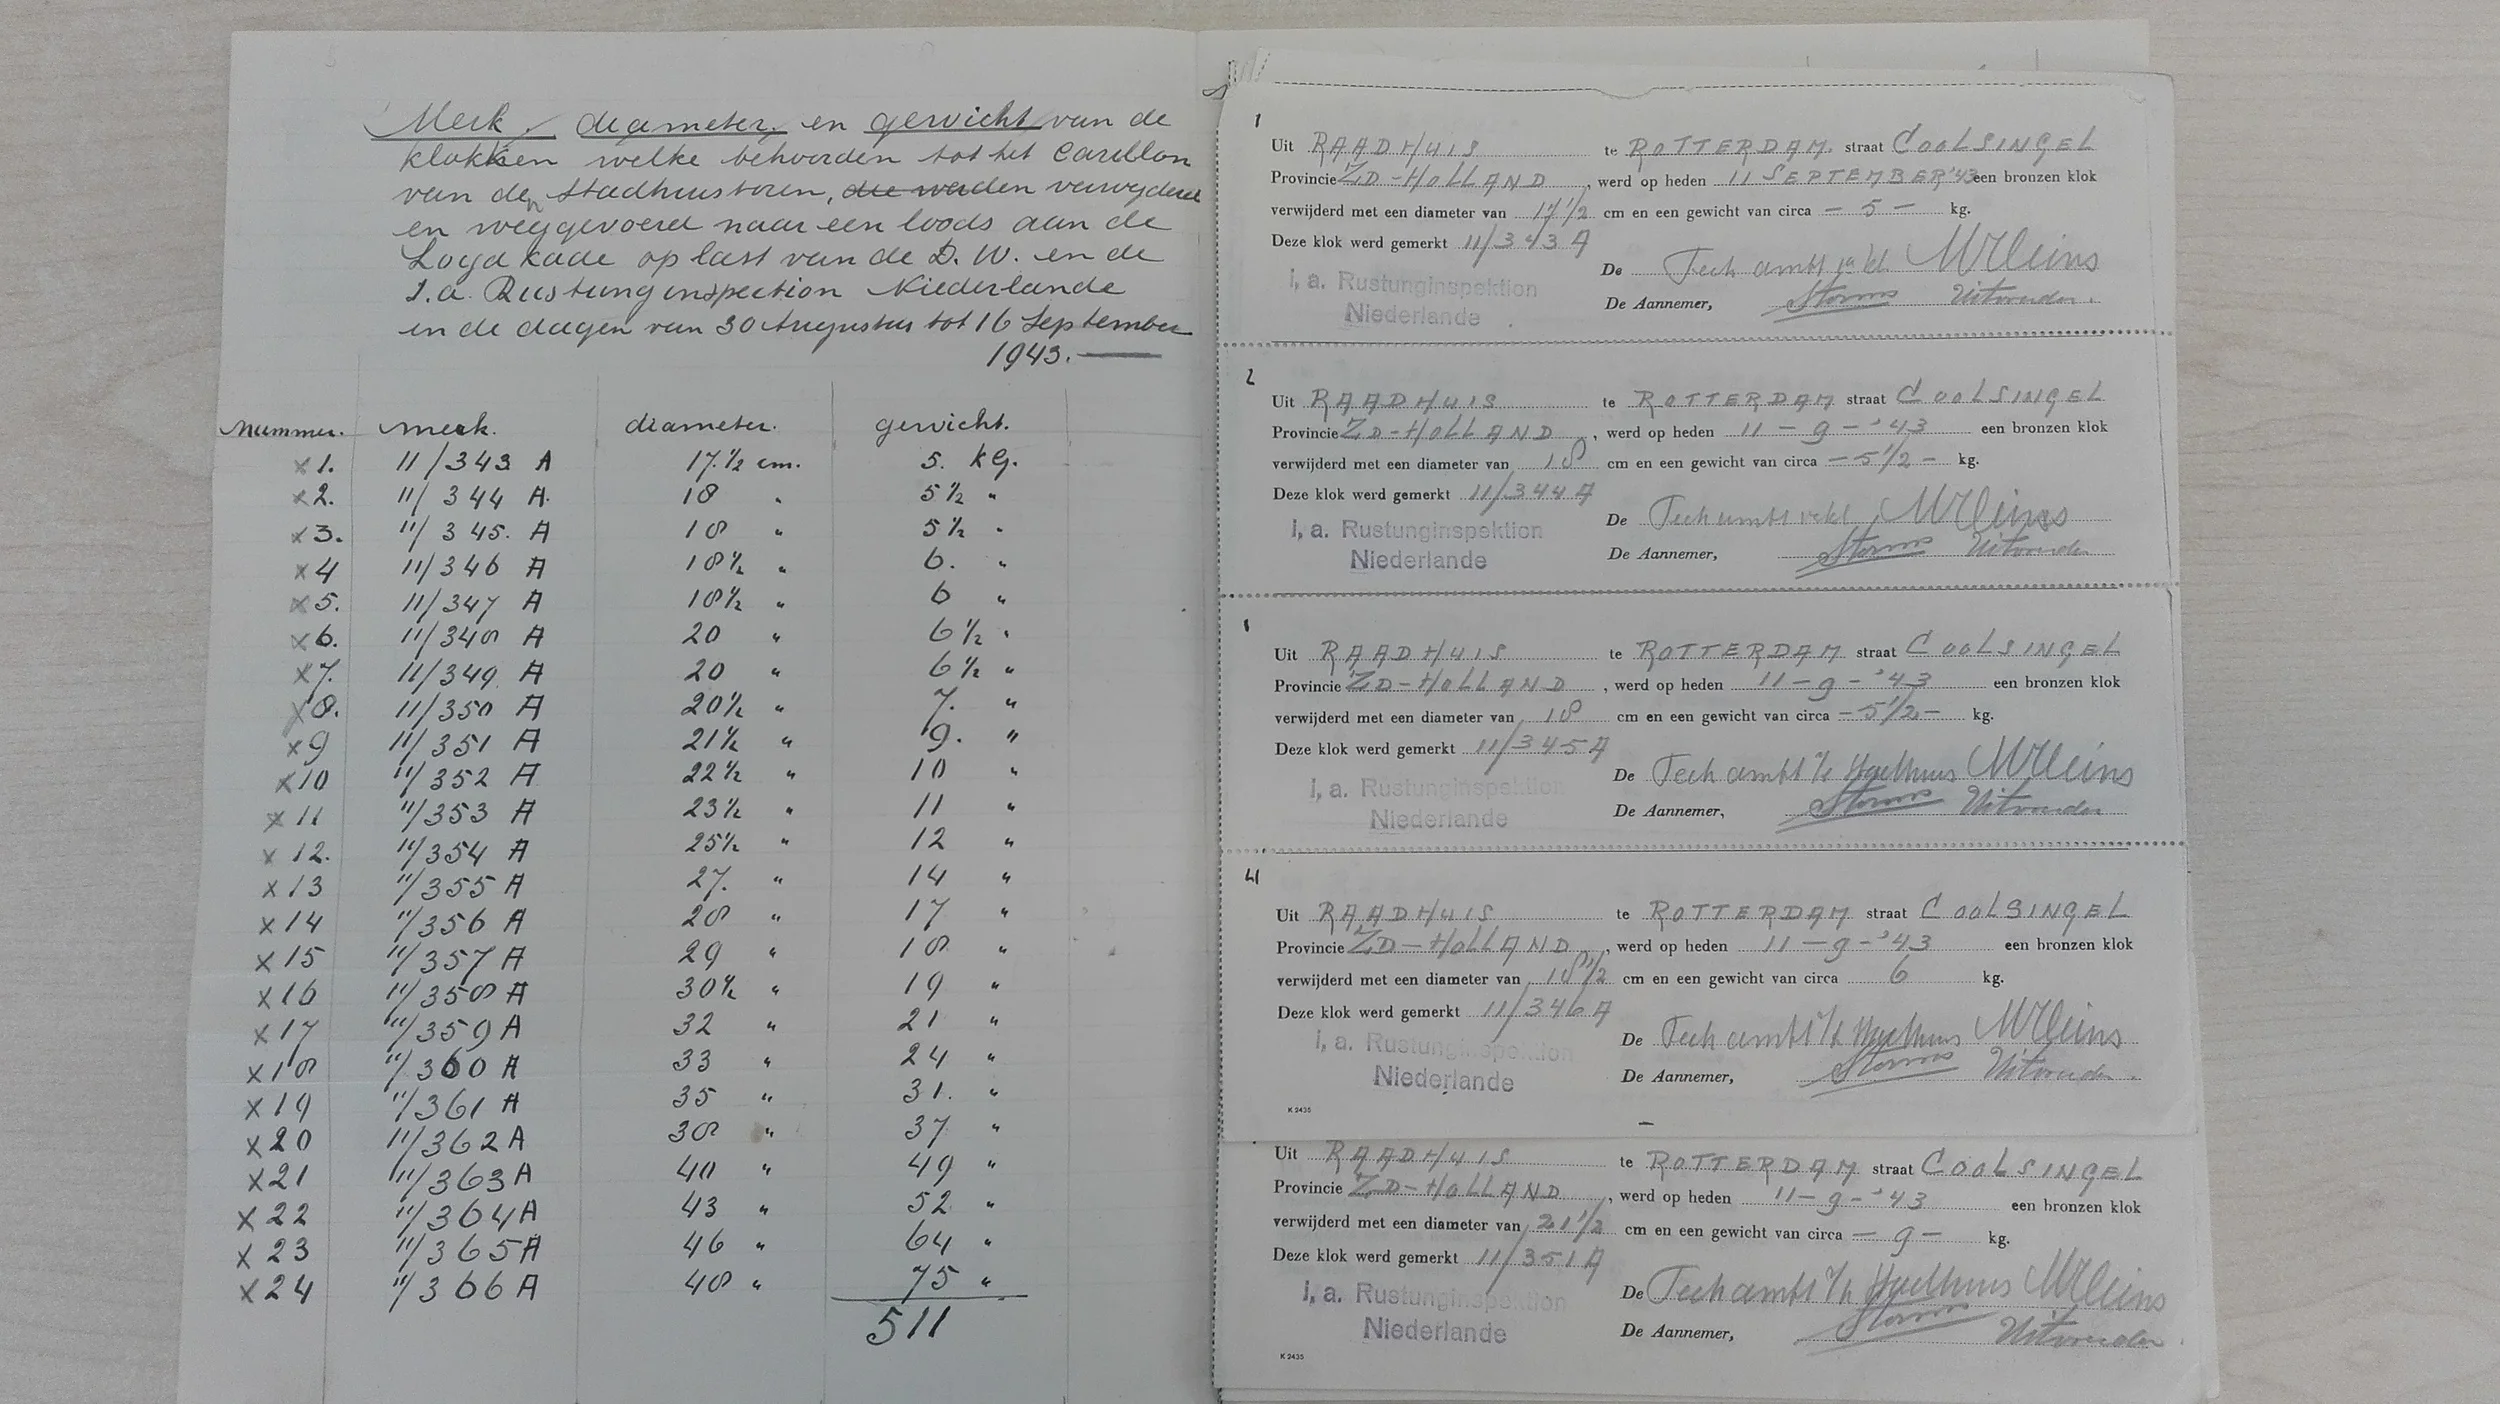 Merk, diameter, en gewicht van de
klokken welke behoorden tot het Carillon
van den Stadhuistoren, die werden verwijderd
en weggevoerd naar een loods aan de
Loydkade op last van de D. W. en de
I.a. Rustunginspection Niederlande
in de dagen van 30 Augustus tot 16 September
1943.
nummer. merk. diameter. gewicht.
x 1. 11/343 A 17 1/2 cm. 5. KG.
x 2. 11/344 A. 18 " 5 1/2 "
x 3. 11/345. A 18 " 5 1/2 "
x 4 11/346 A 18 1/2 " 6. "
x 5. 11/347 A 18 1/2 " 6 "
x 6. 11/348 A 20 " 6 1/2 "
x 7. 11/349 A 20 " 6 1/2 "
x 8. 11/350 A 20 1/2 " 7. "
x 9 11/351 A 21 1/2 " 9. "
x 10 11/352 A 22 1/2 " 10 "
x 11 11/353 A 23 1/2 " 11 "
x 12. 11/354 A 25 1/2 " 12 "
x 13 11/355 A 27. " 14 "
x 14 11/356 A 28 " 17 "
x 15 11/357 A 29 " 18 "
x 16 11/358 A 30 1/2 " 19 "
x 17 11/359 A 32 " 21 "
x 18 11/360 A 33 " 24 "
x 19 11/361 A 35 " 31. "
x 20 11/362 A 38 " 37 "
x 21 11/363 A 40 " 49 "
x 22 11/364 A 43 " 52 "
x 23 11/365 A 46 " 64 "
x 24 11/366 A 48 " 75 "
511
1
Uit RAADHUIS te ROTTERDAM. straat COOLSINGEL
Provincie ZD-HOLLAND, werd op heden 11 SEPTEMBER '43 een bronzen klok
verwijderd met een diameter van 17 1/2 cm en een gewicht van circa – 5 – kg.
Deze klok werd gemerkt 11/343 A
I, a. Rustunginspektion
Niederlande
De Tech ambt
De Aannemer, Storms Uitvoerder.
2
Uit RAADHUIS te ROTTERDAM straat COOLSINGEL
Provincie ZD-HOLLAND, werd op heden 11 – 9 – '43 een bronzen klok
verwijderd met een diameter van 18 cm en een gewicht van circa – 5 1/2 – kg.
Deze klok werd gemerkt 11/344 A
I, a. Rustunginspektion
Niederlande
De Tech ambt
De Aannemer, Storms Uitvoerder
1
Uit RAADHUIS te ROTTERDAM straat COOLSINGEL
Provincie ZD-HOLLAND, werd op heden 11 – 9 – '43 een bronzen klok
verwijderd met een diameter van 18 cm en een gewicht van circa – 5 1/2 – kg.
Deze klok werd gemerkt 11/345 A
I, a. Rustunginspektion
Niederlande
De Tech ambt
De Aannemer, Storms Uitvoerder
4
Uit RAADHUIS te ROTTERDAM straat COOLSINGEL
Provincie ZD-HOLLAND, werd op heden 11 – 9 – '43 een bronzen klok
verwijderd met een diameter van 18 1/2 cm en een gewicht van circa 6 kg.
Deze klok werd gemerkt 11/346 A
I, a. Rustunginspektion
Niederlande
De Tech ambt
De Aannemer, Storms Uitvoerder.
K 2435
Uit RAADHUIS te ROTTERDAM straat COOLSINGEL
Provincie ZD-HOLLAND, werd op heden 11 – 9 – '43 een bronzen klok
verwijderd met een diameter van 21 1/2 cm en een gewicht van circa – 9 – kg.
Deze klok werd gemerkt 11/351 A
I, a. Rustunginspektion
Niederlande
De Tech ambt
De Aannemer, Storms Uitvoerder
K 2435